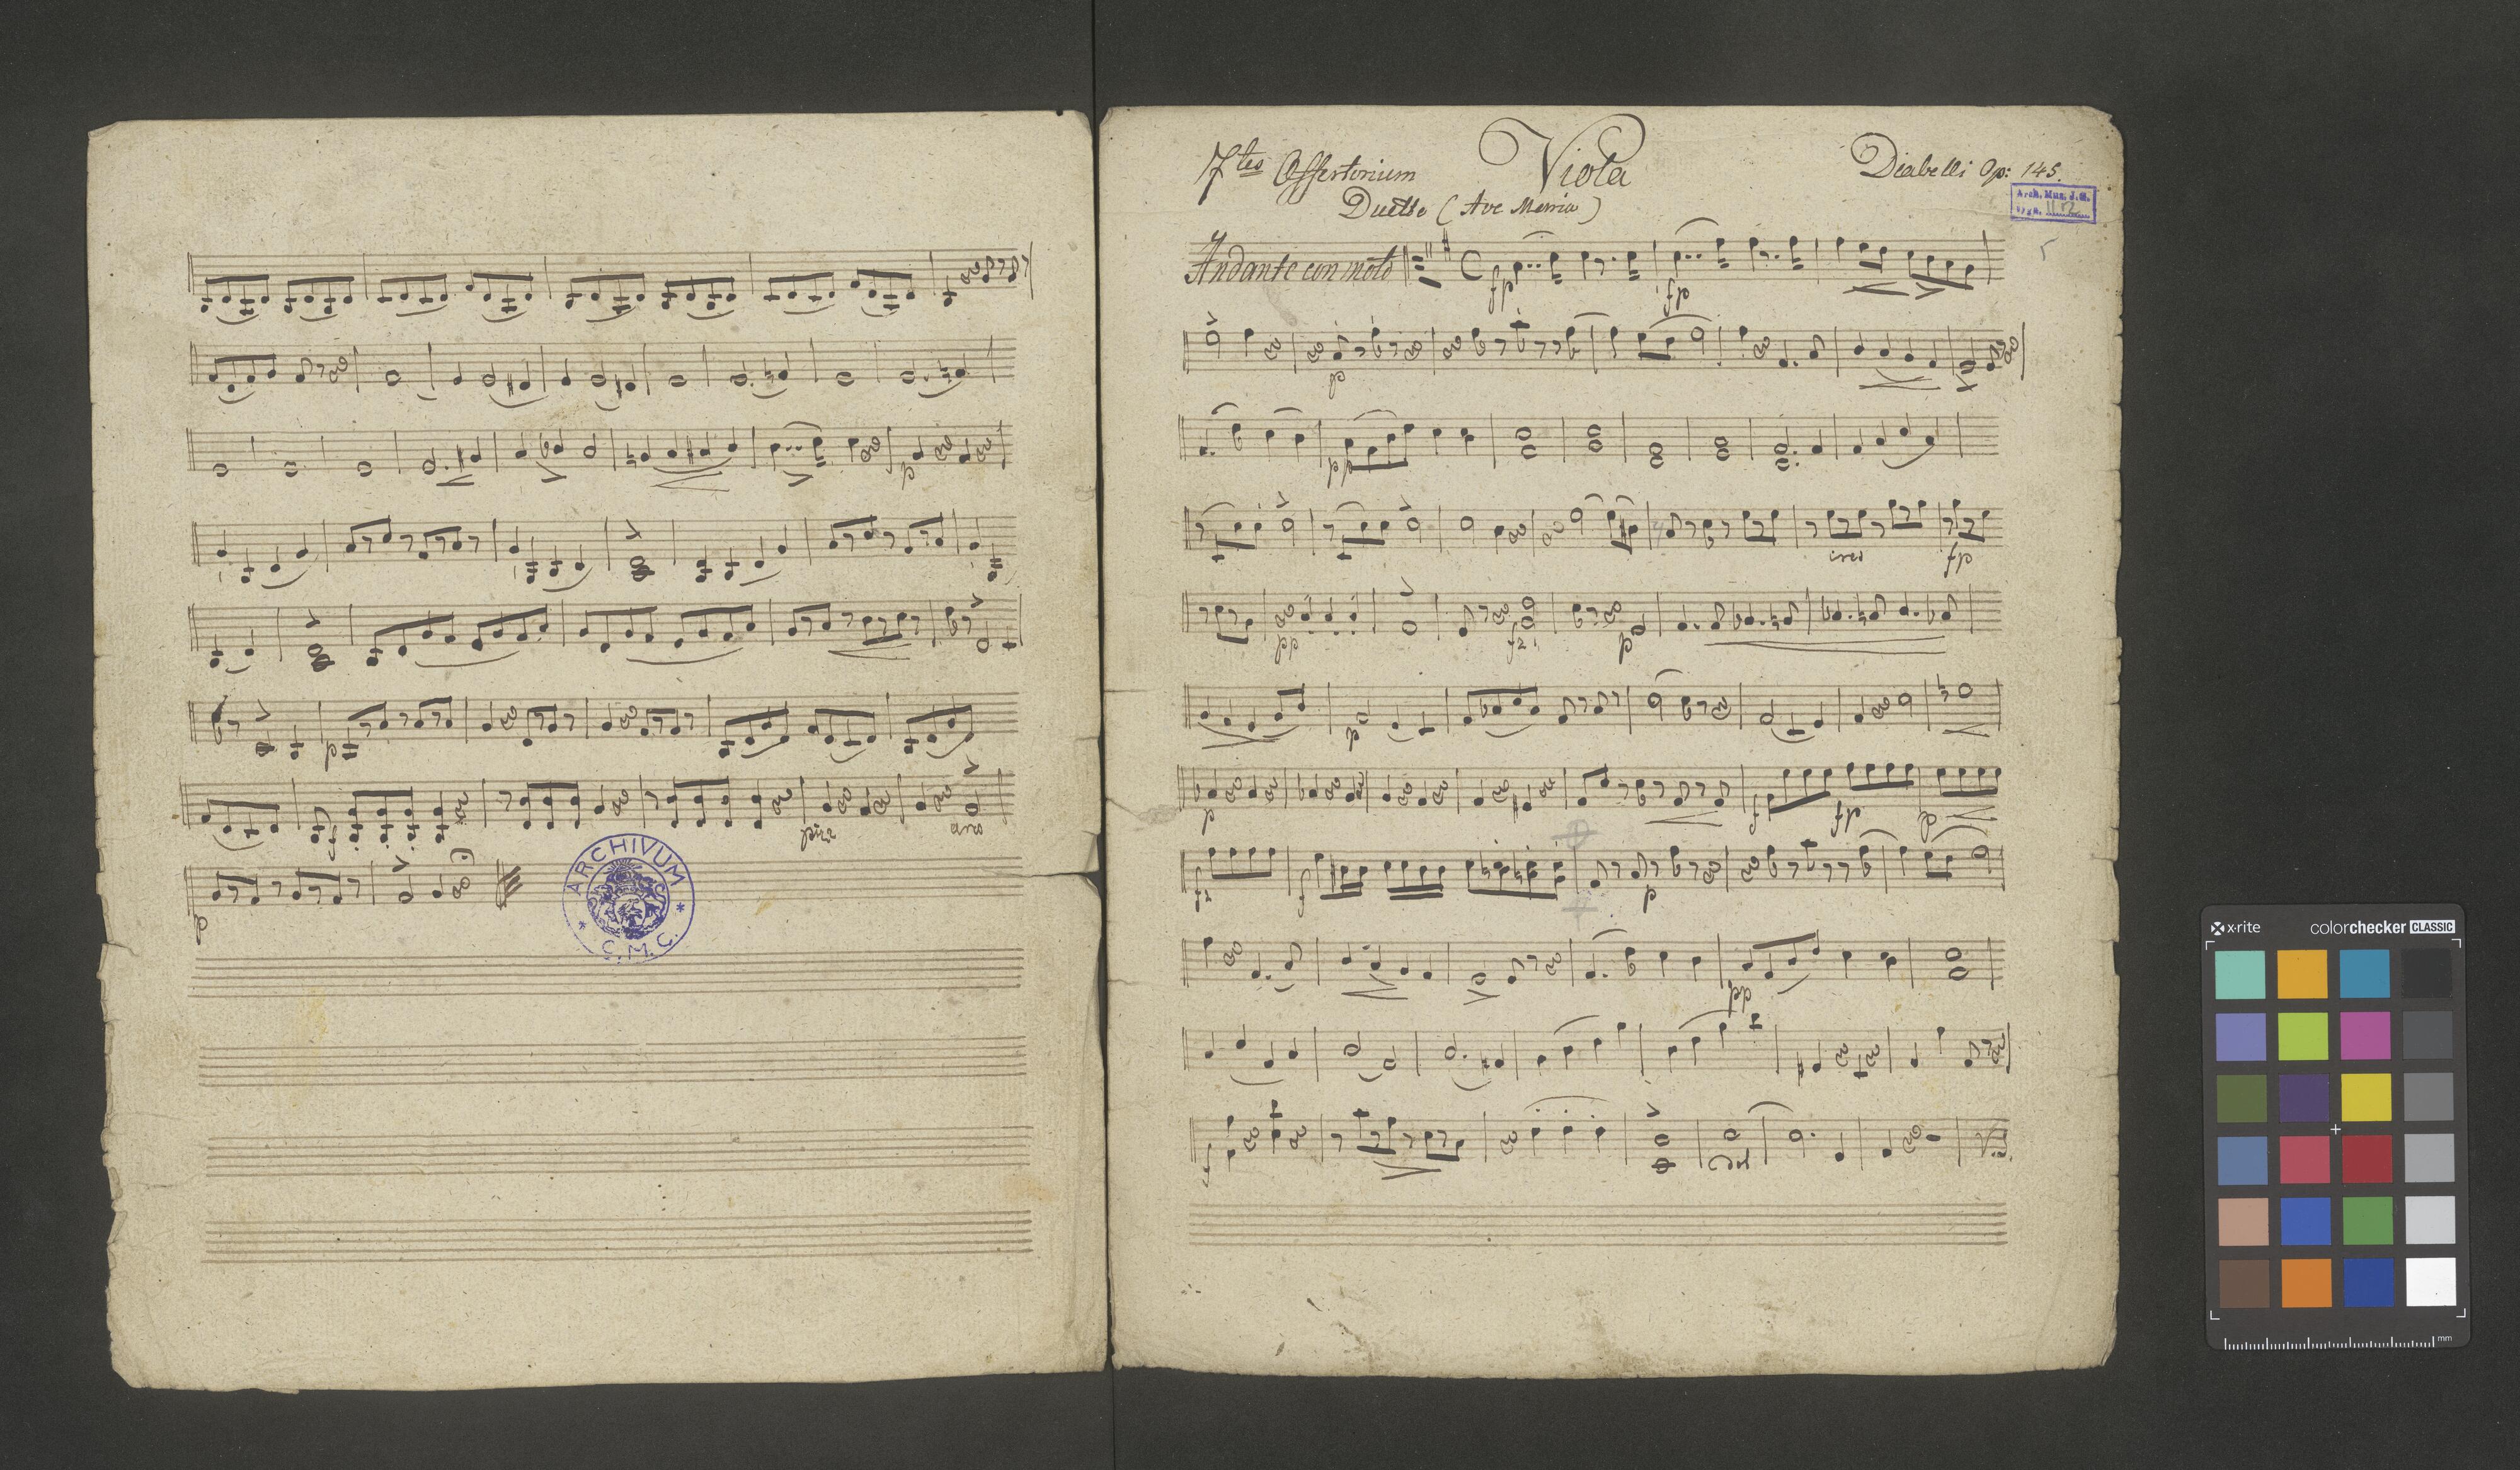 pizz
arco
p
ARCHIVUM
* C. M. C. *
7tes Offertorium
Viola
Diabelli Op: 145.
Duetto (Ave Maria)
Arch. Mus. J. G.
Andante con moto
fp
fp
p
pp
cres
fp
pp
fz
p
p
p
f
fp
p
fz
f
p
pp
f
x-rite
colorchecker CLASSIC
mm